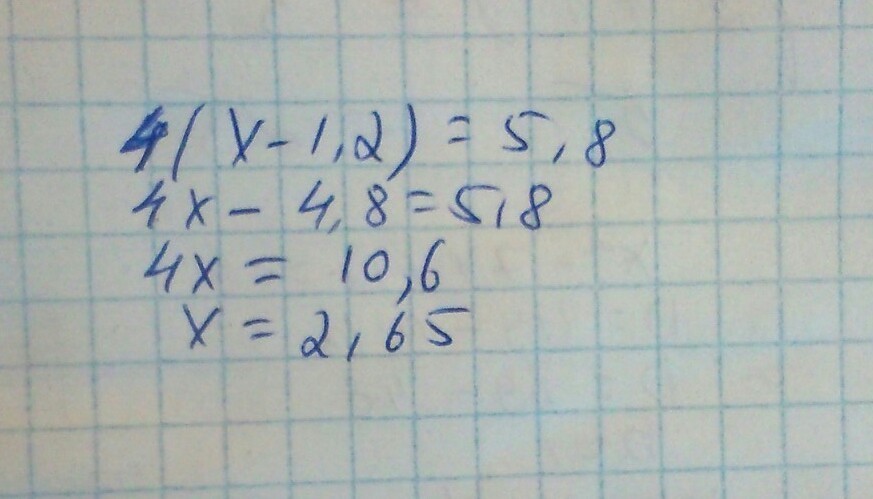 4(x-1,2)=5,8
4x-4,8=5,8
4x=10,6
x=2,65